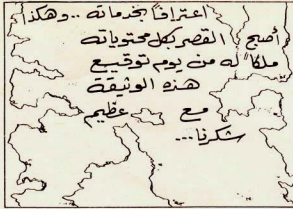 اعترافاً بخدماته .. وهكذا
أصبح القصر بكل محتوياته
ملكاً له من يوم توقيع
هذه الوثيقة
مع عظيم
شكرنا ...